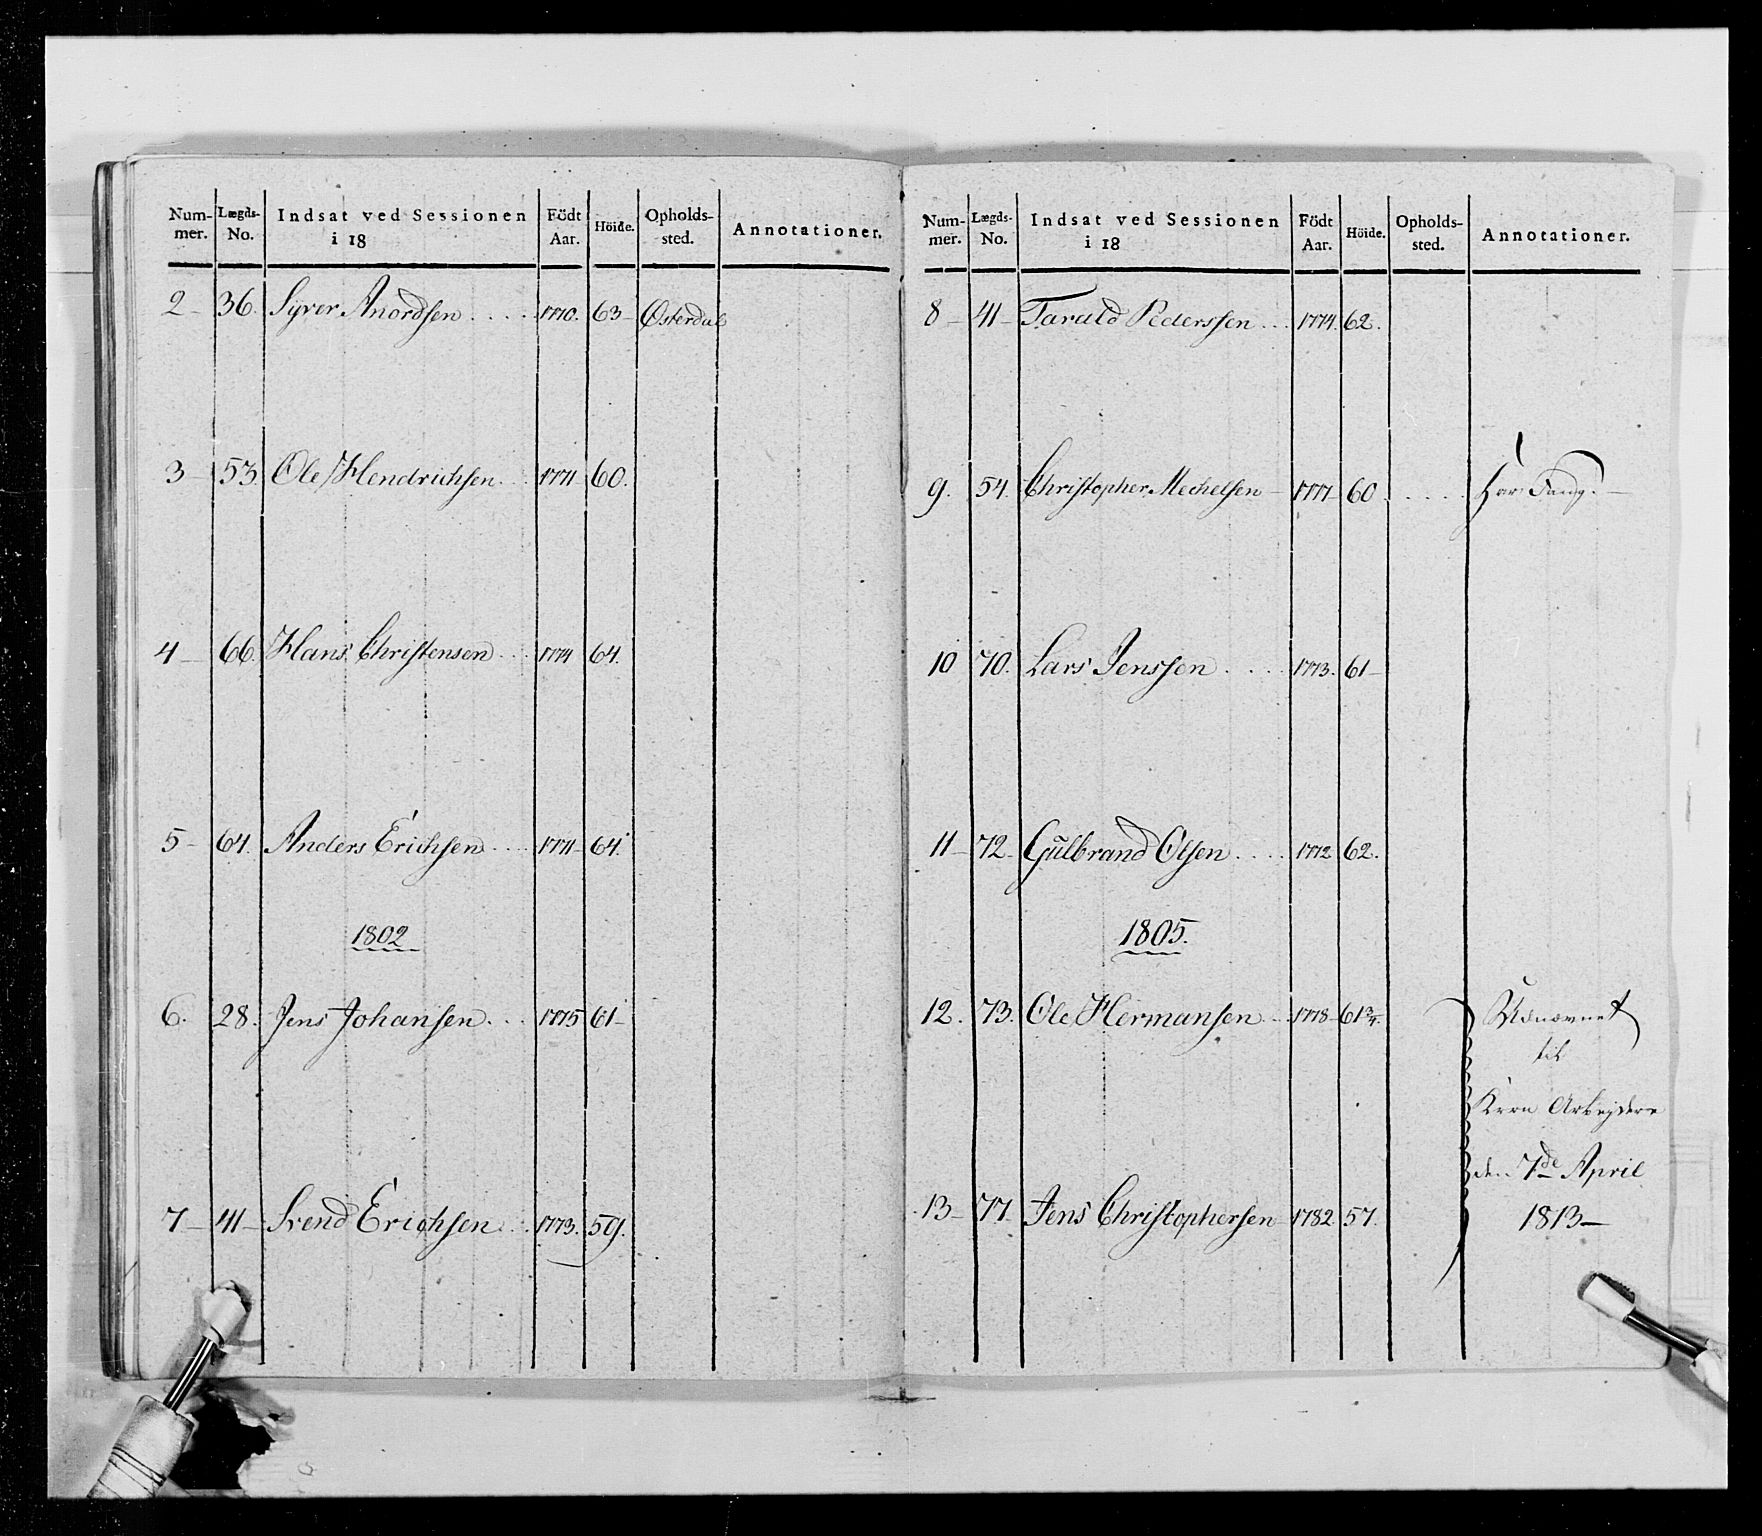 Num- Lægds- Indsat ved Sessionen Födt Höide. Opholds- Annotationer.
mer. No. i 18 Aar. sted.
2 - 36. Syver Anordsen . . . . 1770. 63 - Østerdal
3 - 53. Ole Hendrichsen . . 1771 60.
4 - 66. Hans Christensen . . . 1774 64.
5 - 64. Anders Erichsen . . . . 1771 - 64.
1802
6. 28. Jens Johansen . . . 1775 61 -
7 - 41 - Svend Erichsen . . 1773. 59.
Num- Lægds- Indsat ved Sessionen Födt Höide. Opholds- Annotationer.
mer. No. i 18 Aar. sted.
8 - 41 - Tarald Pederssen . . . 1774. 62.
9. 54. Christopher Mechelsen - 1777 - 60 . . . . .
10 70. Lars Jenssen . . . . 1773. 61 -
11 - 72. Gülbrand Olsen . . . . 1772 62.
1805.
12. 73. Ole Hermansen . . 1778 - 61 3/4.
til
Arbeydere
den 7de April
13 - 77. Jens Christophersen 1782 57. 1813 -